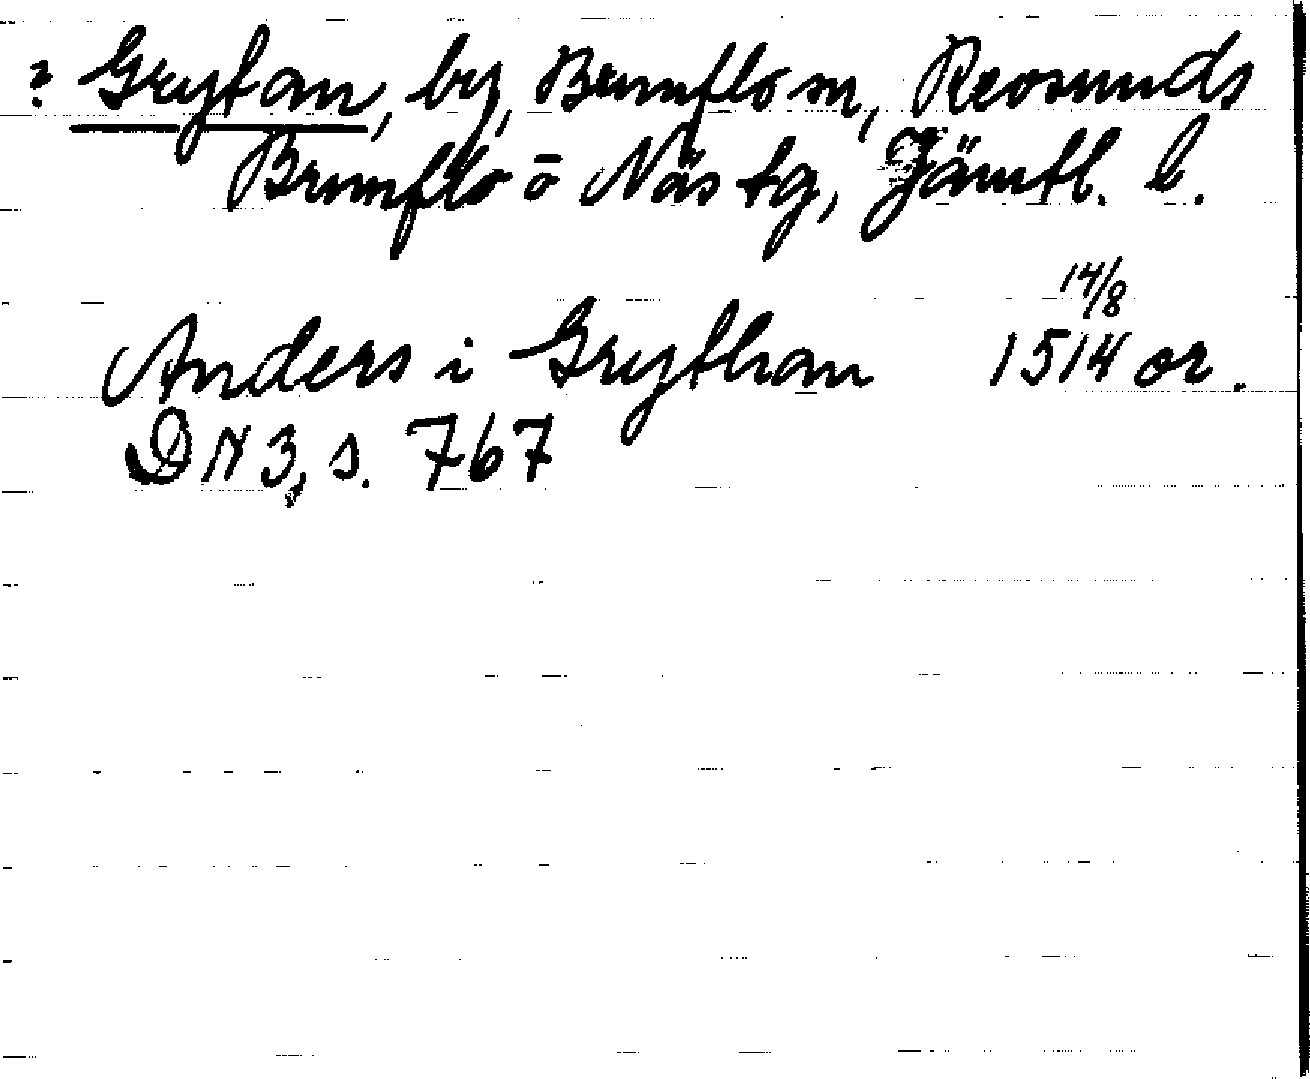 ? Grytan, by, Brunflo sn, Revsunds
Brunflo o Näs tg, Jämtl. l.
Anders i Grythan 14/8 1514 or.
DN 3, s. 767